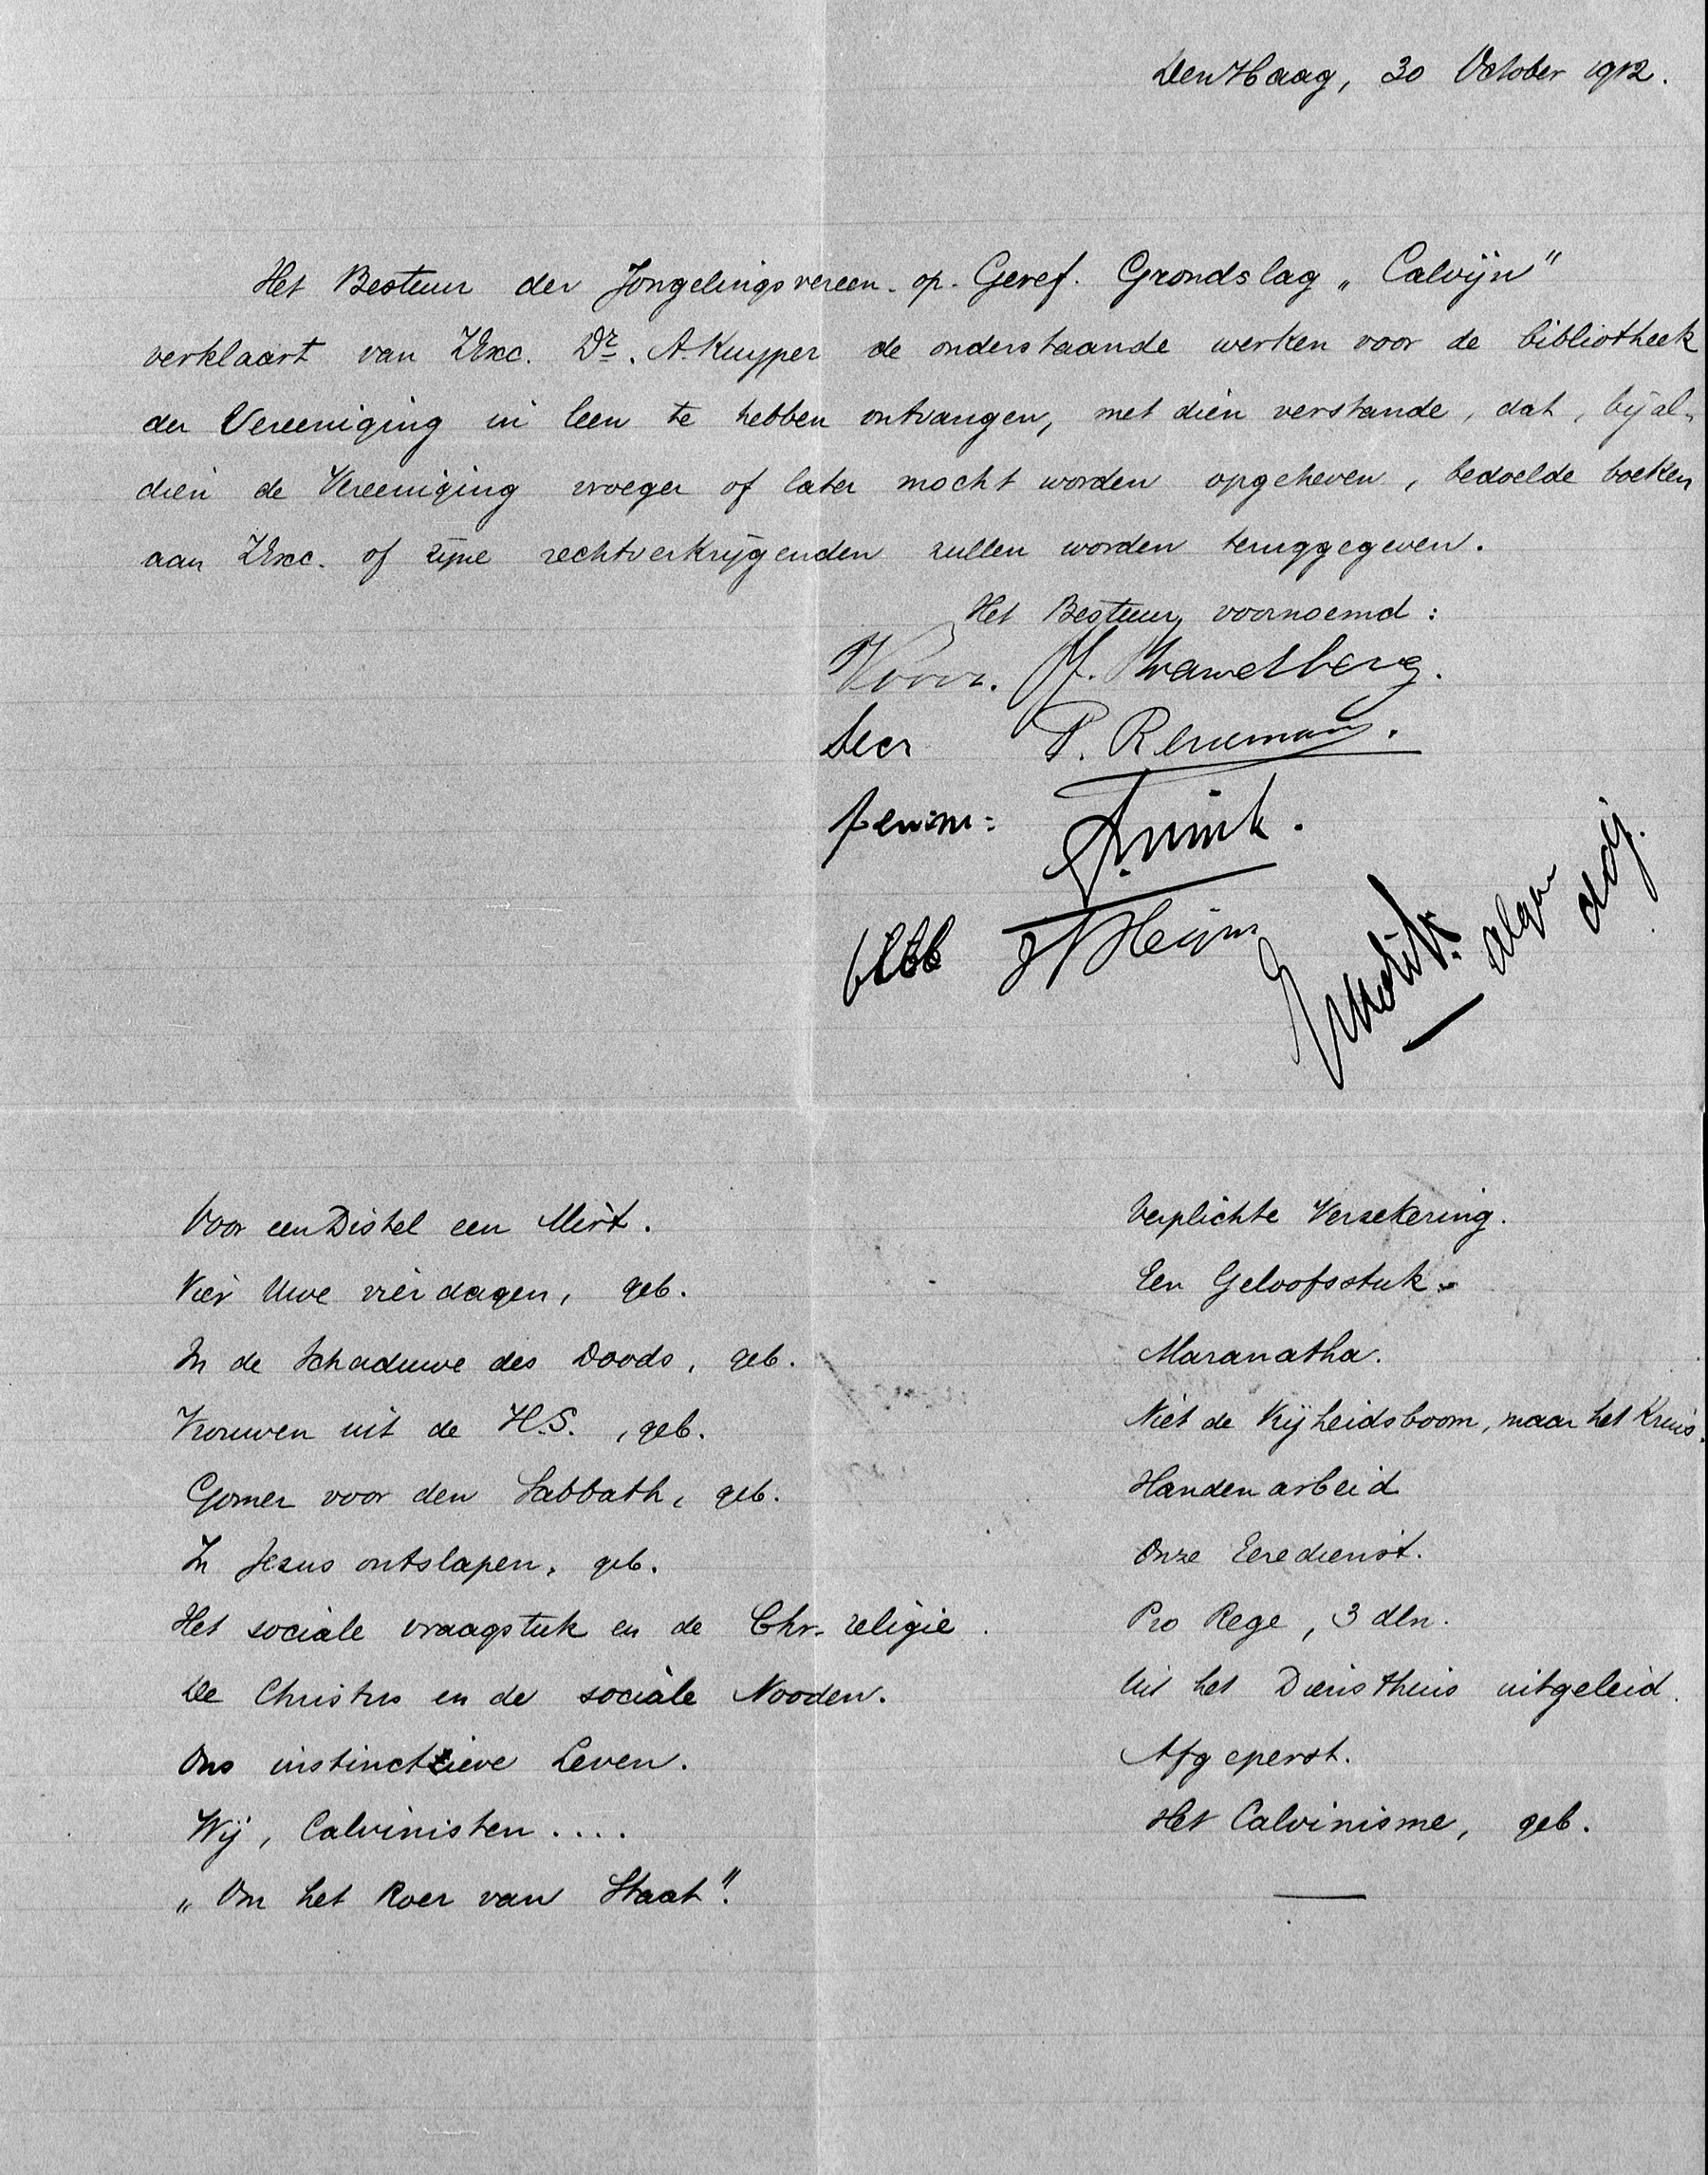 Den Haag, 30 October 1912.
Het Bestuur der Jongelingsvereen. op. Geref. Grondslag „Calvijn"
verklaart van ZExc. Dr. A. Kuyper de onderstaande werken voor de bibliotheek
der Vereeniging in leen te hebben ontvangen, met dien verstande, dat, bijal-
dien de Vereeniging vroeger of later mocht worden opgeheven, bedoelde boeken
aan ZExc. of zijne rechtverkrijgenden zullen worden teruggegeven.
Het Bestuur voornoemd:
Voorz.
Secr
Penm:
bibl
algem
adj.
Voor een Distel een Mirt.
Vier Uwe vierdagen, geb.
In de Schaduwe des Doods, geb.
Vrouwen uit de H.S., geb.
Gomer voor den Sabbath, geb.
In Jezus ontslapen, geb.
Het sociale vraagstuk en de Chr. religie.
De Christus en de sociale Nooden.
Ons instinctieve Leven.
Wij, Calvinisten....
„Om het Roer van Staat".
Verplichte Verzekering.
Een Geloofsstuk.
Maranatha.
Niet de Vrijheidsboom, maar het Kruis.
Handenarbeid
Onze Eeredienst.
Pro Rege, 3 dln.
Uit het Diensthuis uitgeleid.
Afgeperst.
Het Calvinisme, geb.